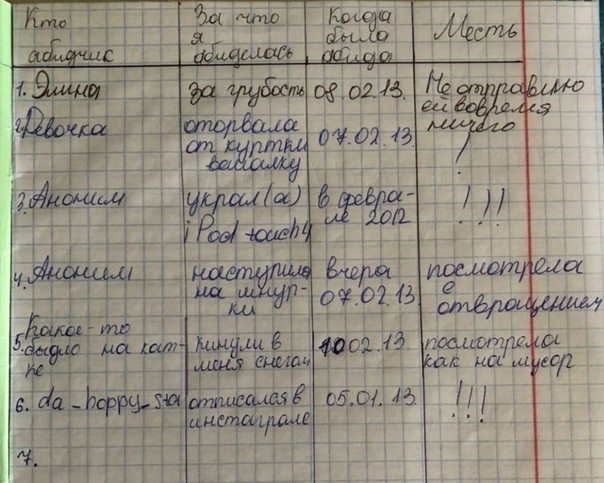 Кто абидчик | За что я абиделась | Когда была абида | Месть
1. Элина | за грубость | 08.02.13. | Не отправлю ей вовремя ничего
2. Девочка | оторвала от куртки васюлку | 07.02.13. | !
3. Аноним | украл(а) iPod touch4 | в феврале 2012 | !!!
4. Аноним | наступила на шнурки | вчера 07.02.13. | посмотрела с отвращением
5. Какое-то быдло на катке | кинули в меня снегом | 10 02.13. | посмотрела как на мусор
6. da_hoppy_sta | отписался в инстаграме | 05.01.13. | !!!
7.